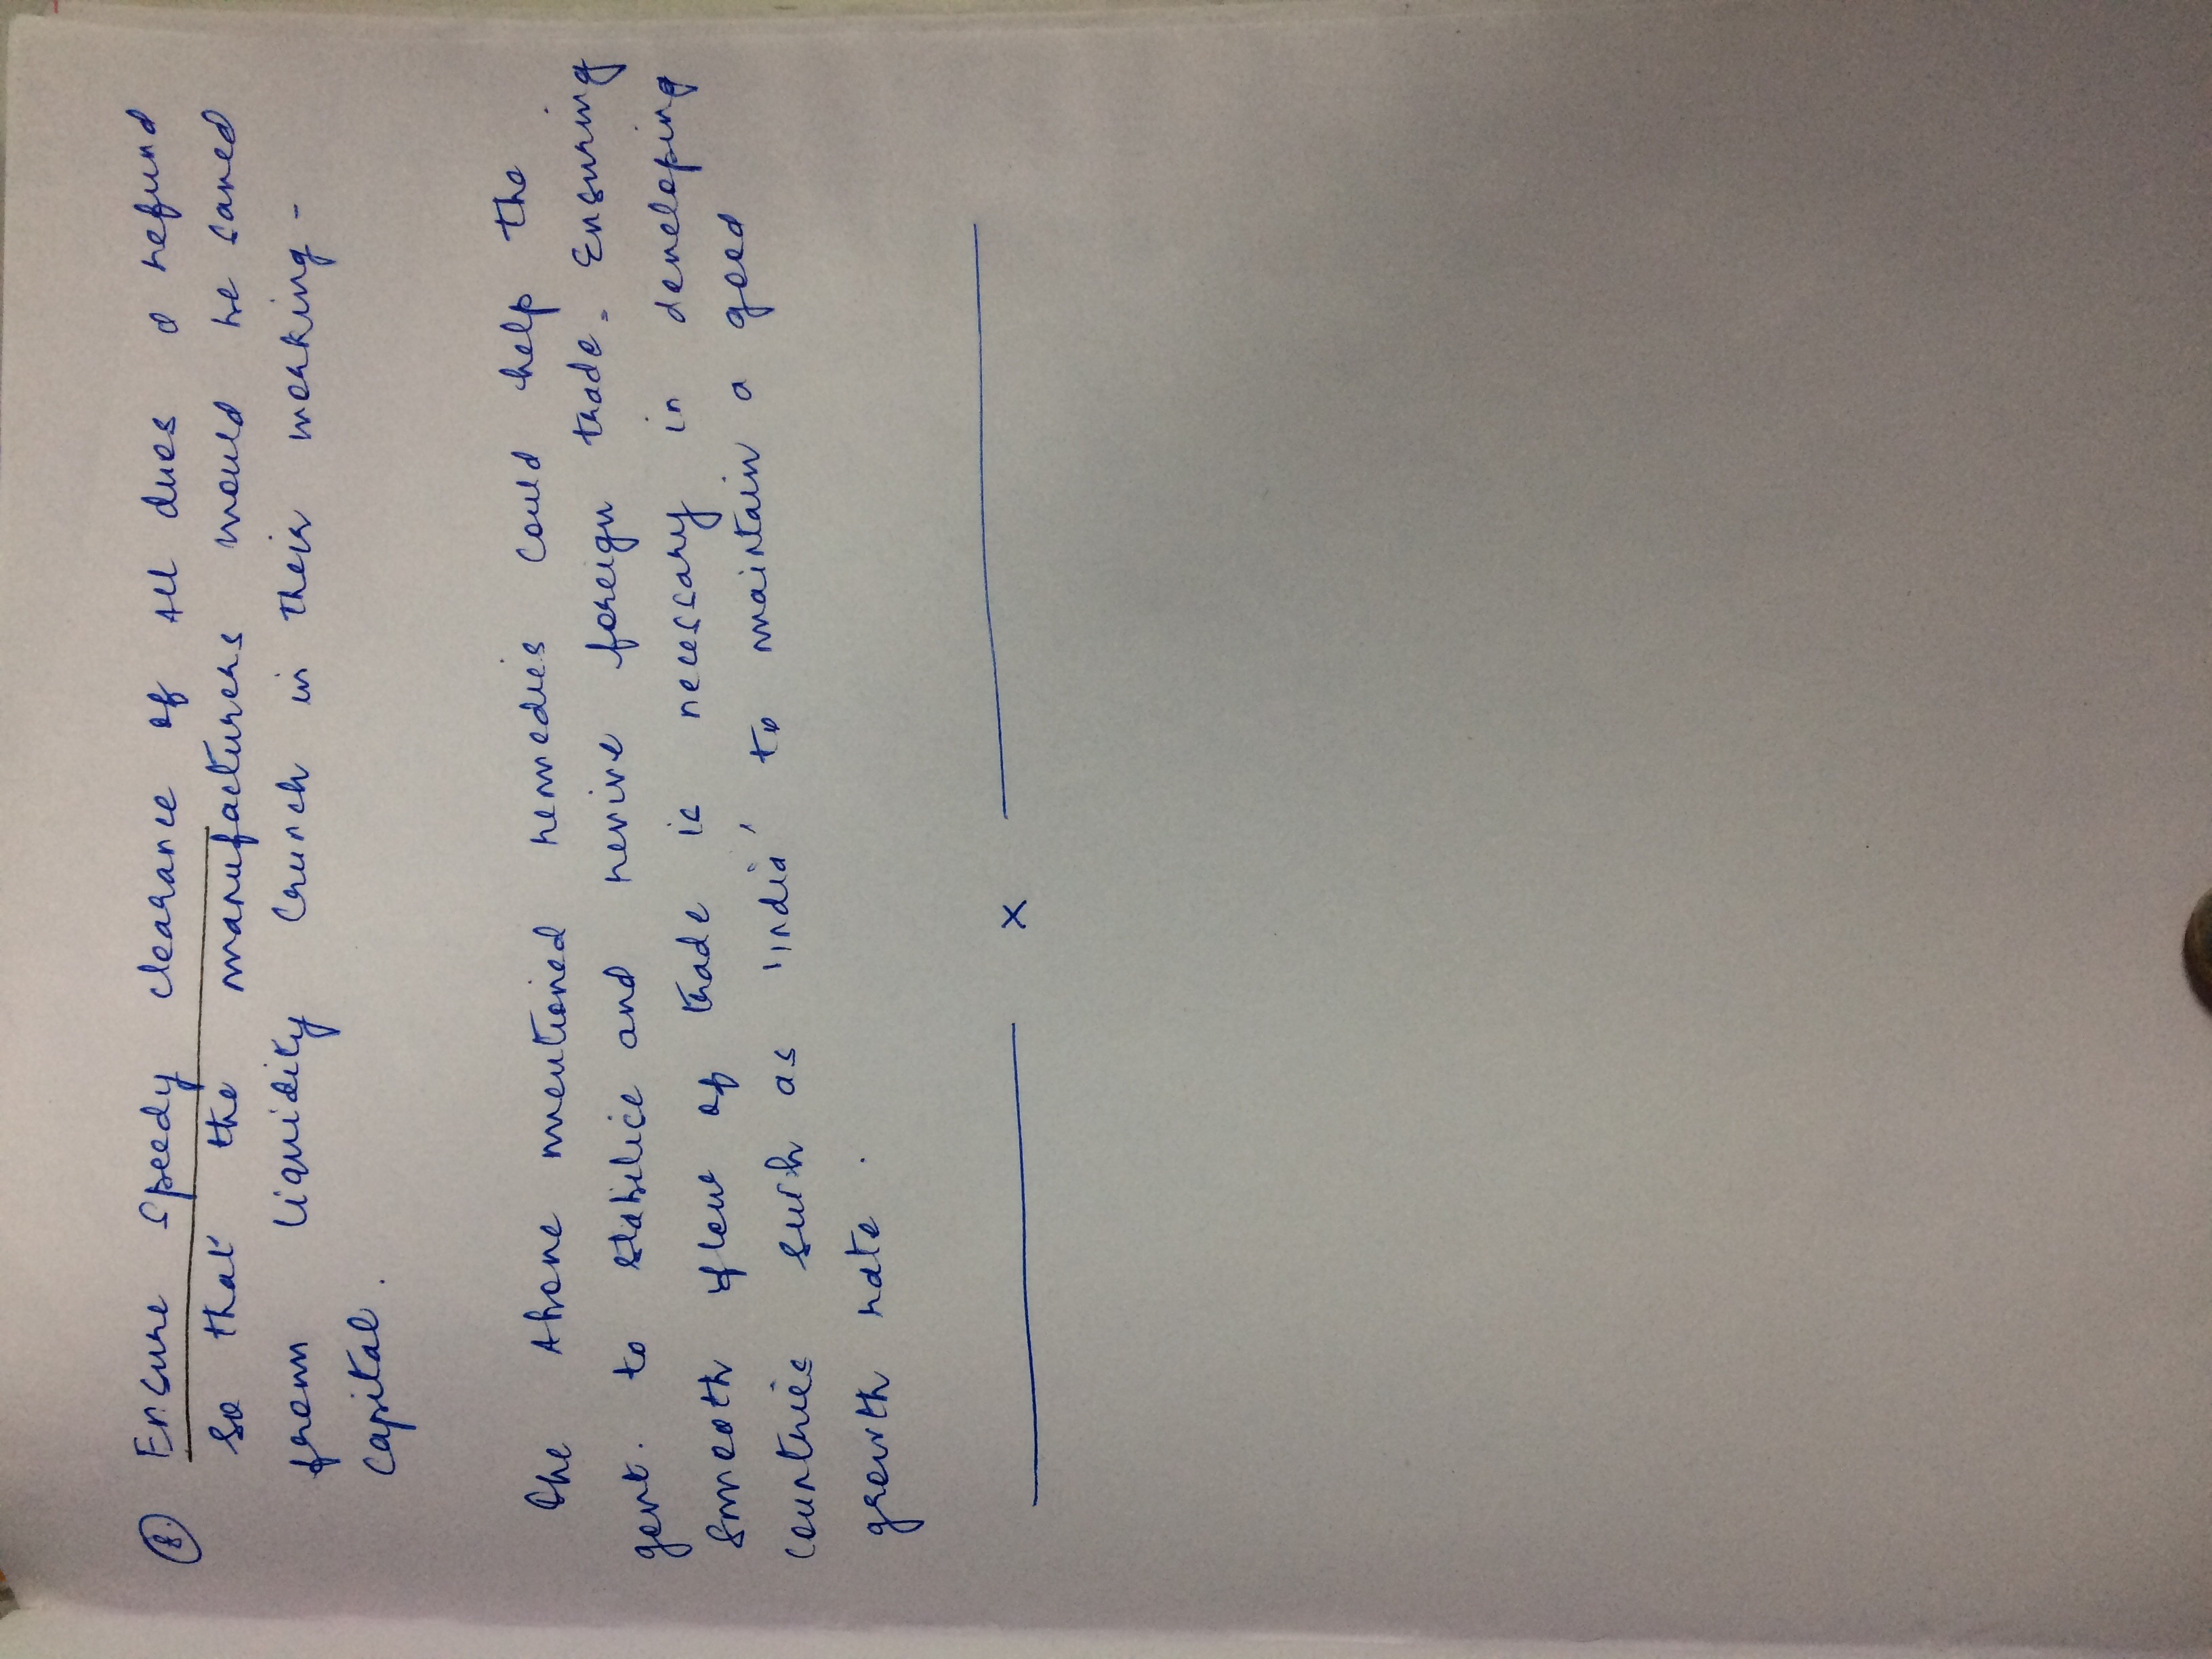 Ensure speedy clearance of All dues & refund
so that the manufacturers would be saved
from liquidity crunch in their working-
capital.
The Above mentioned remedies could help the
govt. to stabilice and revive foreign trade. Ensuring
smooth flow of trade is necessary in developing
countries such as 'india', to maintain a good
growth rate.
x